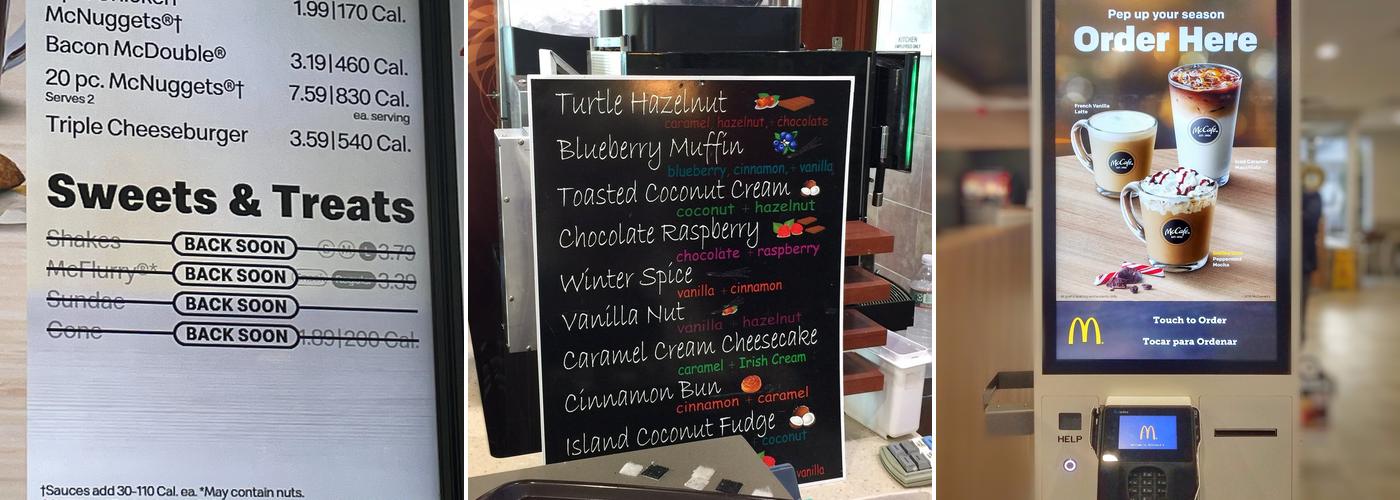 1.99|170 Cal.
McNuggets®†
Bacon McDouble®
3.19|460 Cal.
20 pc. McNuggets®†
Serves 2
7.59|830 Cal.
ea. serving
Triple Cheeseburger
3.59|540 Cal.
Sweets & Treats
Shakes BACK SOON 3.79
McFlurry®* BACK SOON 3.39
Sundae BACK SOON
Cone BACK SOON 1.89|200 Cal.
†Sauces add 30-110 Cal. ea. *May contain nuts.
KITCHEN
Turtle Hazelnut
caramel, hazelnut, + chocolate
Blueberry Muffin
blueberry, cinnamon, + vanilla
Toasted Coconut Cream
coconut + hazelnut
Chocolate Raspberry
chocolate + raspberry
Winter Spice
vanilla + cinnamon
Vanilla Nut
vanilla + hazelnut
Caramel Cream Cheesecake
caramel + Irish Cream
Cinnamon Bun
cinnamon + caramel
Island Coconut Fudge
+ coconut
vanilla
Pep up your season
Order Here
French Vanilla
Latte
McCafé
McCafé
Iced Caramel
Macchiato
McCafé
Peppermint
Mocha
Touch to Order
Tocar para Ordenar
HELP